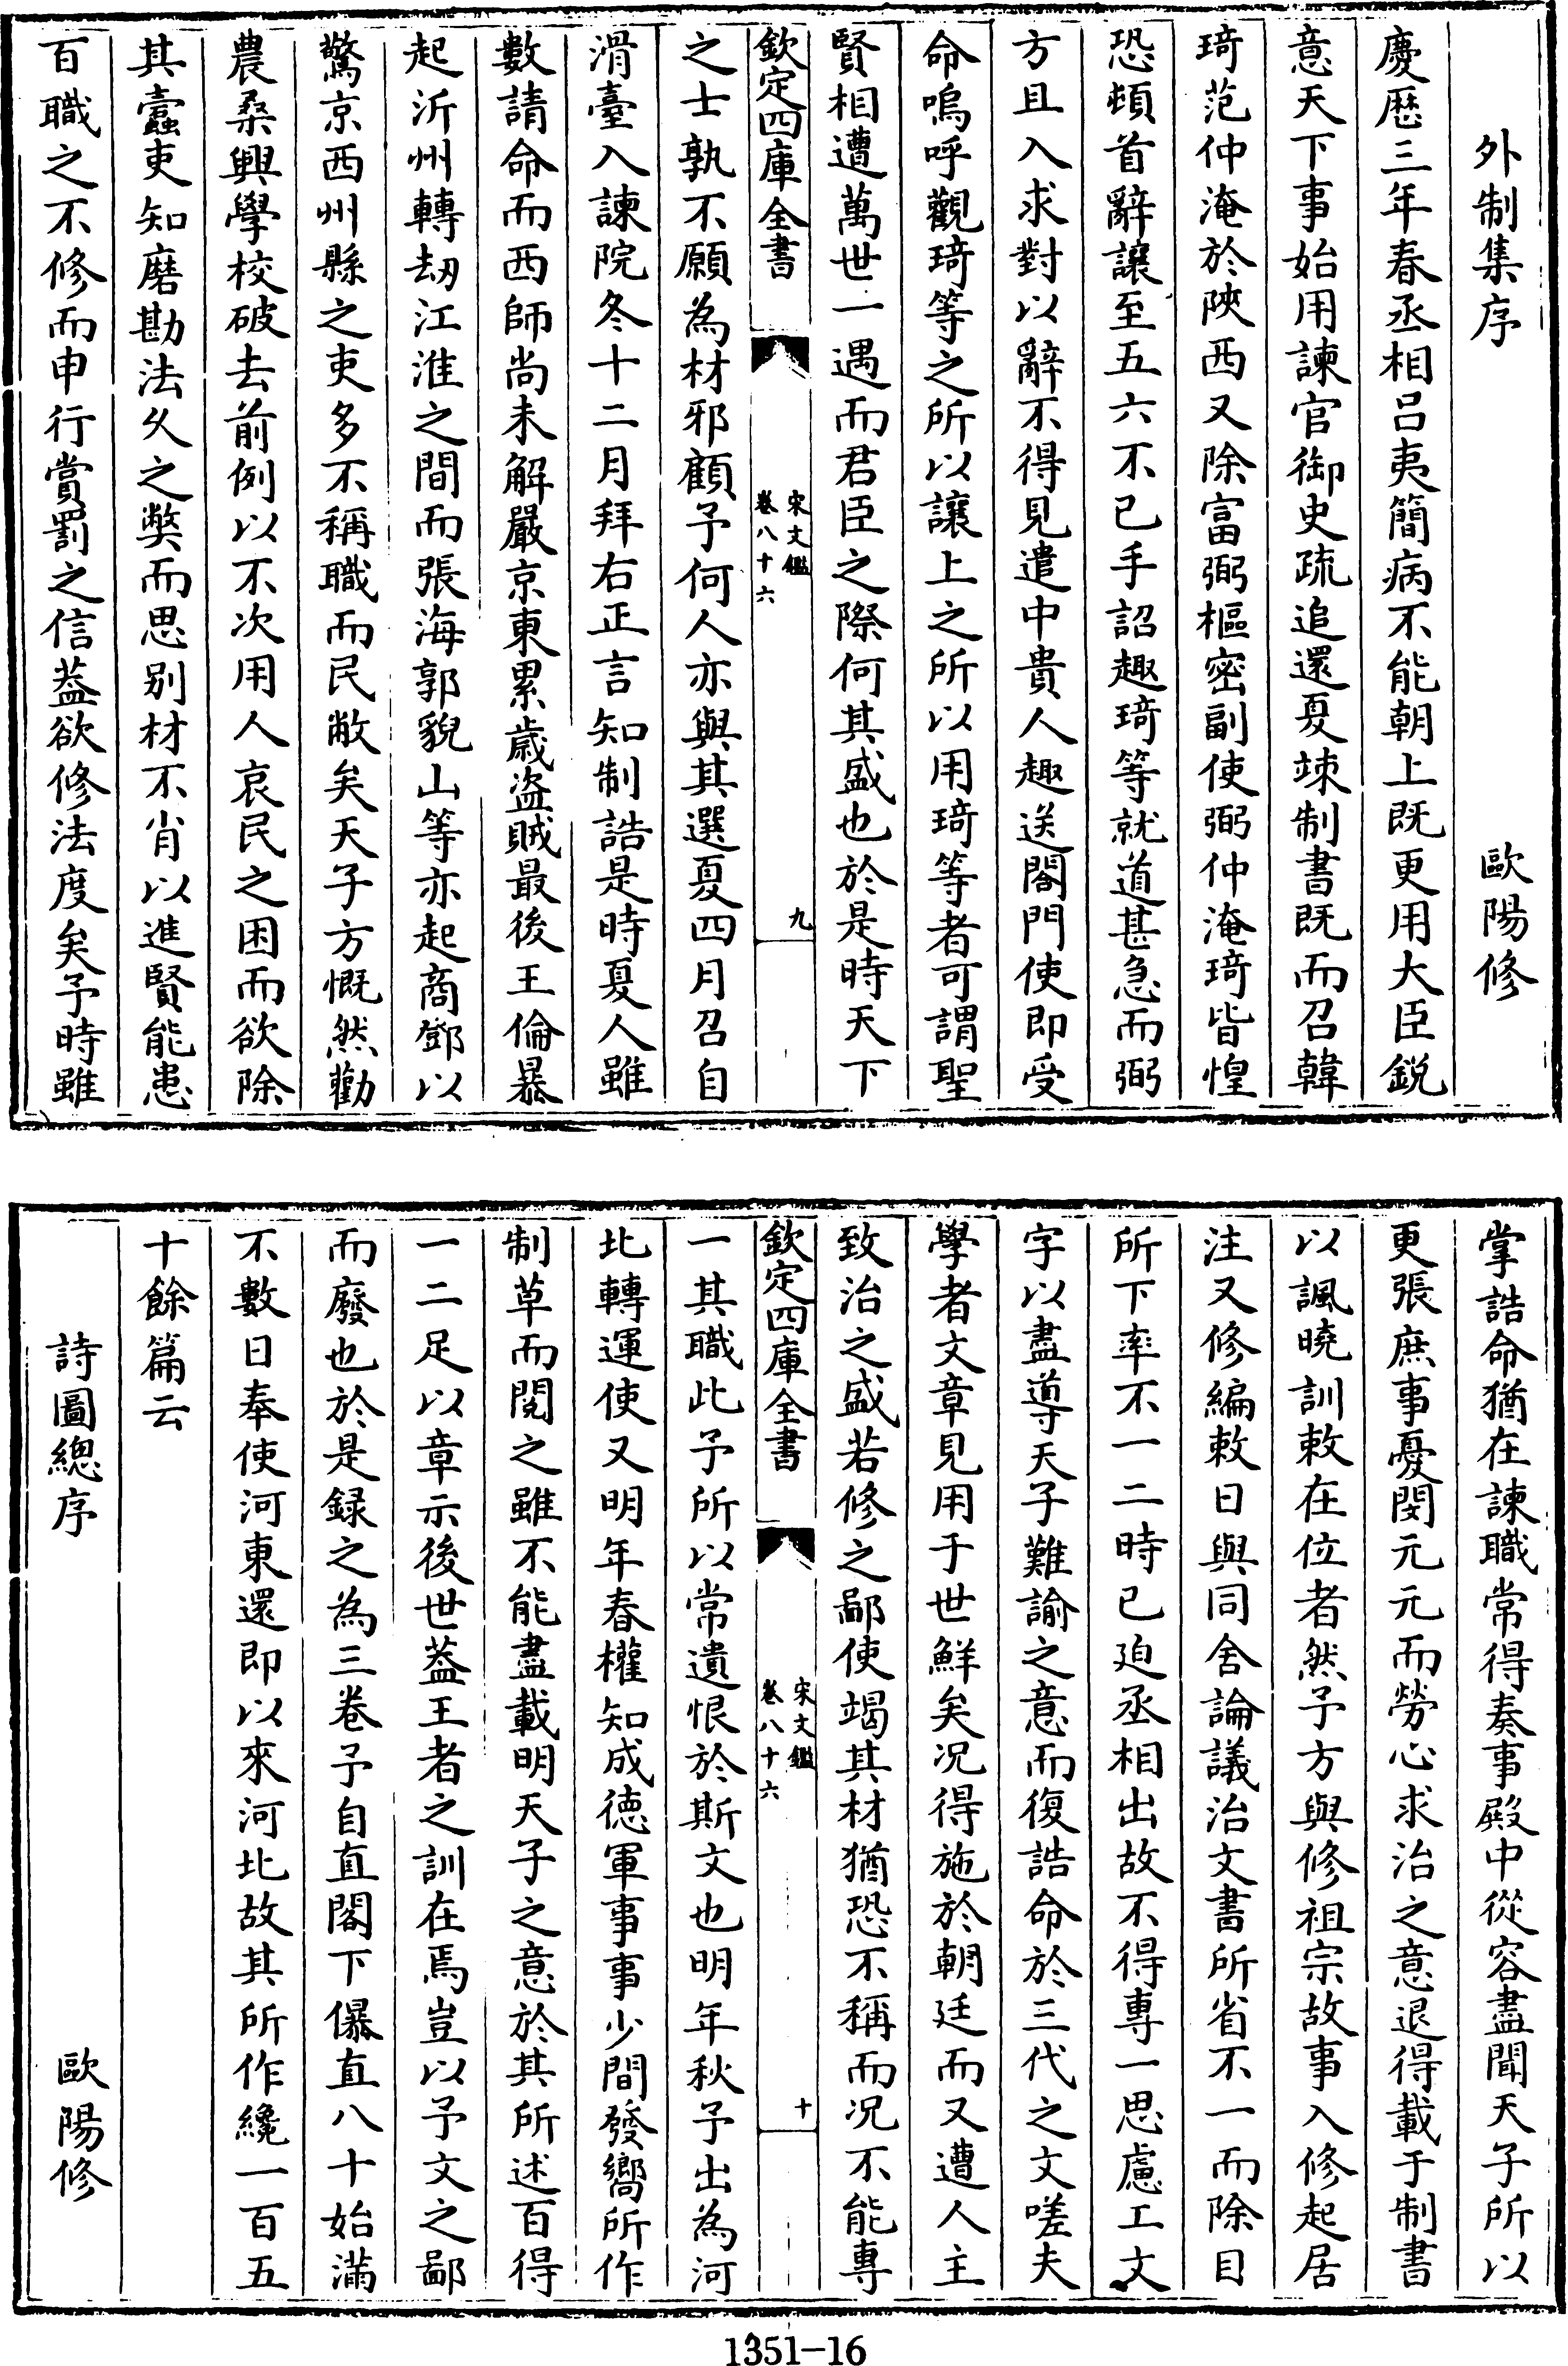 外制集序　　　　　　　　　歐陽修
慶厯三年春丞相吕夷簡病不能朝上既更用大臣銳
意天下事始用諫官御史疏追還夏竦制書既而召韓
琦范仲淹於陜西又除富弼樞密副使弼仲淹琦皆惶
恐頓首辭讓至五六不已手詔趣琦等就道甚急而弼
方且入求對以辭不得見遣中貴人趣送閤門使即受
命嗚呼觀琦等之所以讓上之所以用琦等者可謂聖
賢相遭萬世一遇而君臣之際何其盛也於是時天下
欽定四庫全書　宋文鑑　卷八十六　九
之士孰不願為材邪顧予何人亦與其選夏四月召自
滑臺入諫院冬十二月拜右正言知制誥是時夏人雖
數請命而西師尚未解嚴京東累歲盜賊最後王倫暴
起沂州轉刧江淮之間而張海郭貌山等亦起商鄧以
驚京西州縣之吏多不稱職而民敝矣天子方慨然勸
農桑興學校破去前例以不次用人哀民之困而欲除
其蠧吏知磨勘法久之弊而思别材不肖以進賢能患
百職之不修而申行賞罰之信葢欲修法度矣予時雖
掌誥命猶在諫職常得奏事殿中從容盡聞天子所以
更張庶事憂閔元元而勞心求治之意退得載于制書
以諷曉訓敕在位者然予方與修祖宗故事入修起居
注又修編敕日與同舍論議治文書所省不一而除目
所下率不一二時已迫丞相出故不得專一思慮工文
字以盡導天子難諭之意而復誥命於三代之文嗟夫
學者文章見用于世鮮矣况得施於朝廷而又遭人主
致治之盛若修之鄙使竭其材猶恐不稱而况不能專
欽定四庫全書　宋文鑑　卷八十六　十
一其職此予所以常遺恨於斯文也明年秋予出為河
北轉運使又明年春權知成徳軍事事少間發嚮所作
制草而閱之雖不能盡載明天子之意於其所述百得
一二足以章示後世葢王者之訓在焉豈以予文之鄙
而廢也於是録之為三卷予自直閣下儤直八十始滿
不數日奉使河東還即以來河北故其所作纔一百五
十餘篇云
詩圖總序　　　　　　　　歐陽修
1351-16